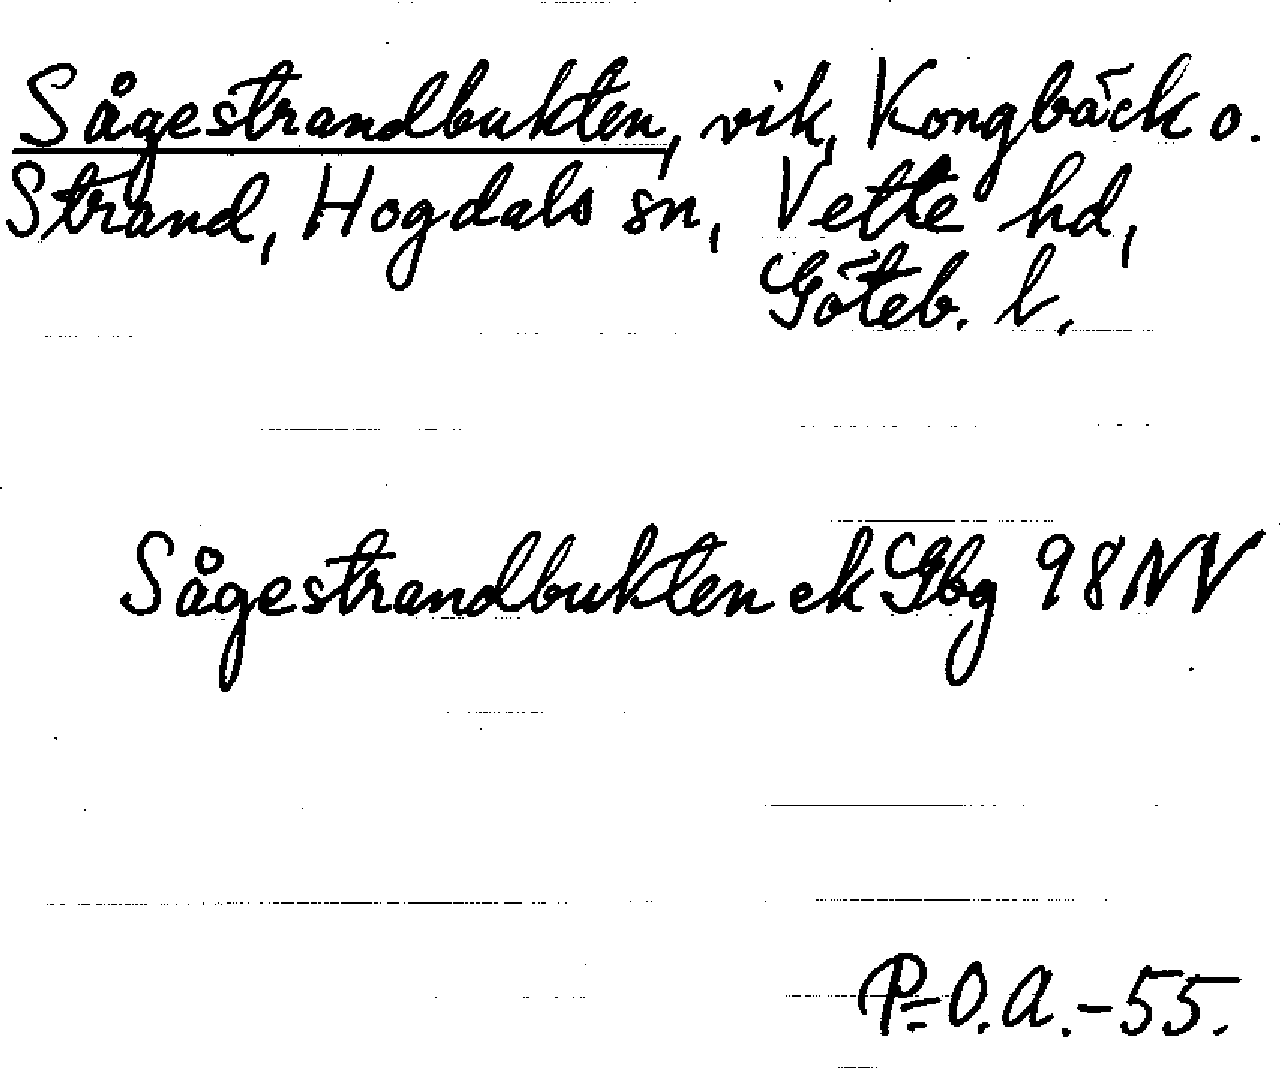 Sågestrandbukten, vik, Kongbäck o.
Strand, Hogdals sn, Vette hd,
Göteb. l.
Sågestrandbukten ek Gbg 98 NV
P.-O.A.-55.